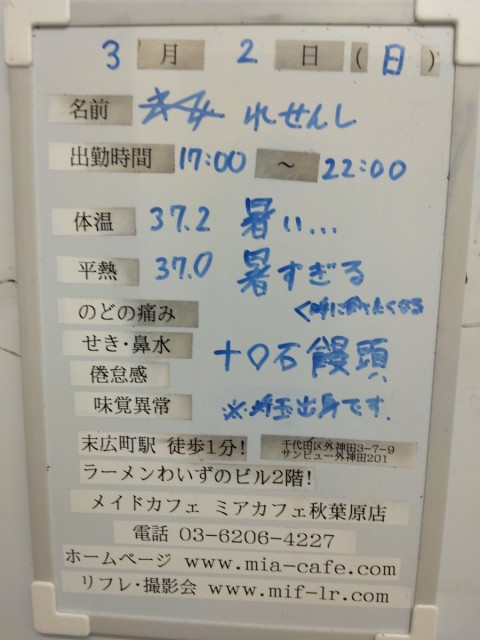 3 月 2 日 ( 日 )
名前 れせんし
出勤時間 17:00 ～ 22:00
体温 37.2 暑い...
平熱 37.0 暑すぎる
のどの痛み くなる
せき・鼻水
十〇石饅頭
倦怠感
味覚異常 ※埼玉出身です.
末広町駅 徒歩1分! 千代田区外神田3-7-9
サンビュー外神田201
ラーメンわいずのビル2階!
メイドカフェ ミアカフェ秋葉原店
電話 03-6206-4227
ホームページ www.mia-cafe.com
リフレ・撮影会 www.mif-lr.com